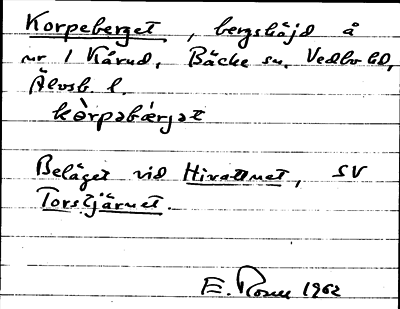 Korpeberget, bergshöjd å
nr 1 Kårud, Bäcke sn, Vedbo hd,
Älvsb. l.
kòrpəbærjət
Beläget vid Hivattnet, SV
Torstjärnet.
E. Rosen 1962